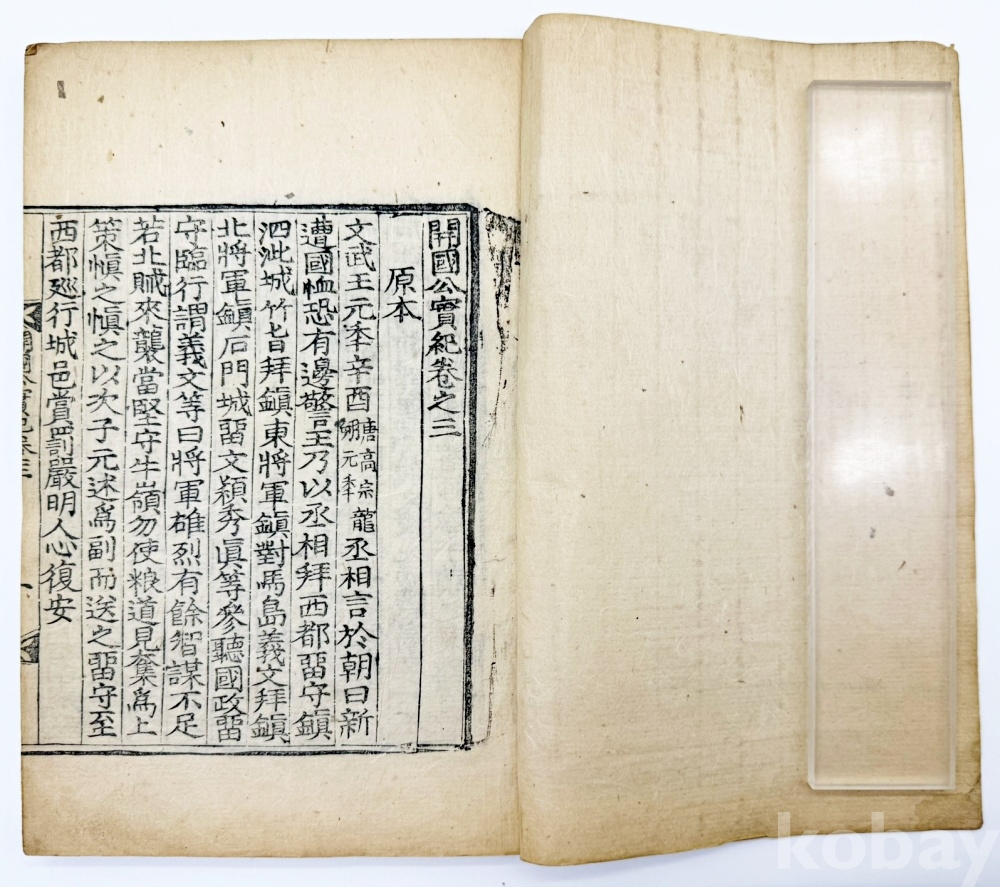 開國公實紀卷之三
原本
文武王元年辛酉唐高宗龍朔元年丞相言於朝曰新
遭國恤恐有邊警王乃以丞相拜西都留守鎭
泗沘城竹旨拜鎭東將軍鎭對馬島義文拜鎭
北將軍鎭石門城留文穎秀眞等參聽國政留
守臨行謂義文等曰將軍雄烈有餘智謀不足
若北賊來襲當堅守牛嶺勿使粮道見奪爲上
策愼之愼之以次子元述爲副而送之留守至
西都廵行城邑賞罰嚴明人心復安
開國公實紀卷三
一
kobay